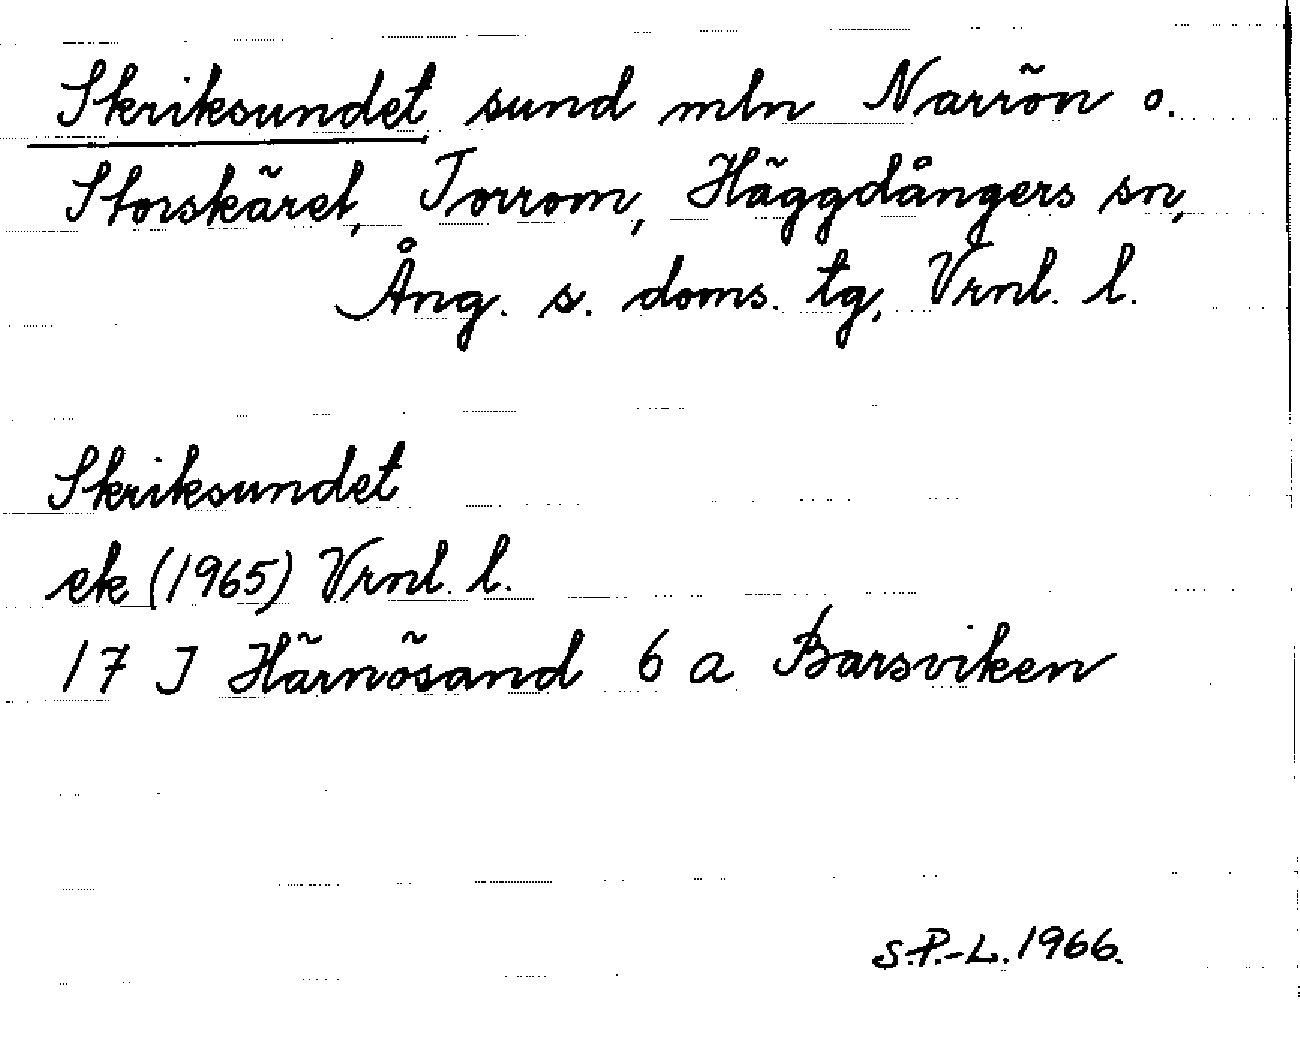 Skriksundet sund mln Narrön o.
Storskäret, Torrom, Häggdångers sn,
Ång. s. doms. tg, Vrnl. l.
Skriksundet
ek (1965) Vrnl. l.
17 J Härnösand 6 a Barsviken
S.P.-L. 1966.